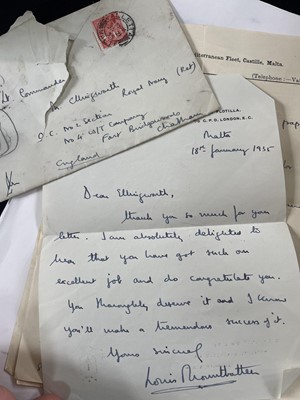 Lt Commander
M Ellingworth Royal Navy (Ret)
O.C. No 2 Section
No 4 W/T Company
Fort Bridgewoods
Chatham
England
Mediterranean Fleet, Castille, Malta.
(Telephone:—
FLOTILLA.
G.P.O. LONDON, E.C.
Malta
18th January 1935
Dear Ellingworth,
Thank you so much for your
letter. I am absolutely delighted to
hear that you have got such an
excellent job and do congratulate you.
You thoroughly deserve it and I know
you'll make a tremendous success of it.
Yours sincerely
Louis Mountbatten